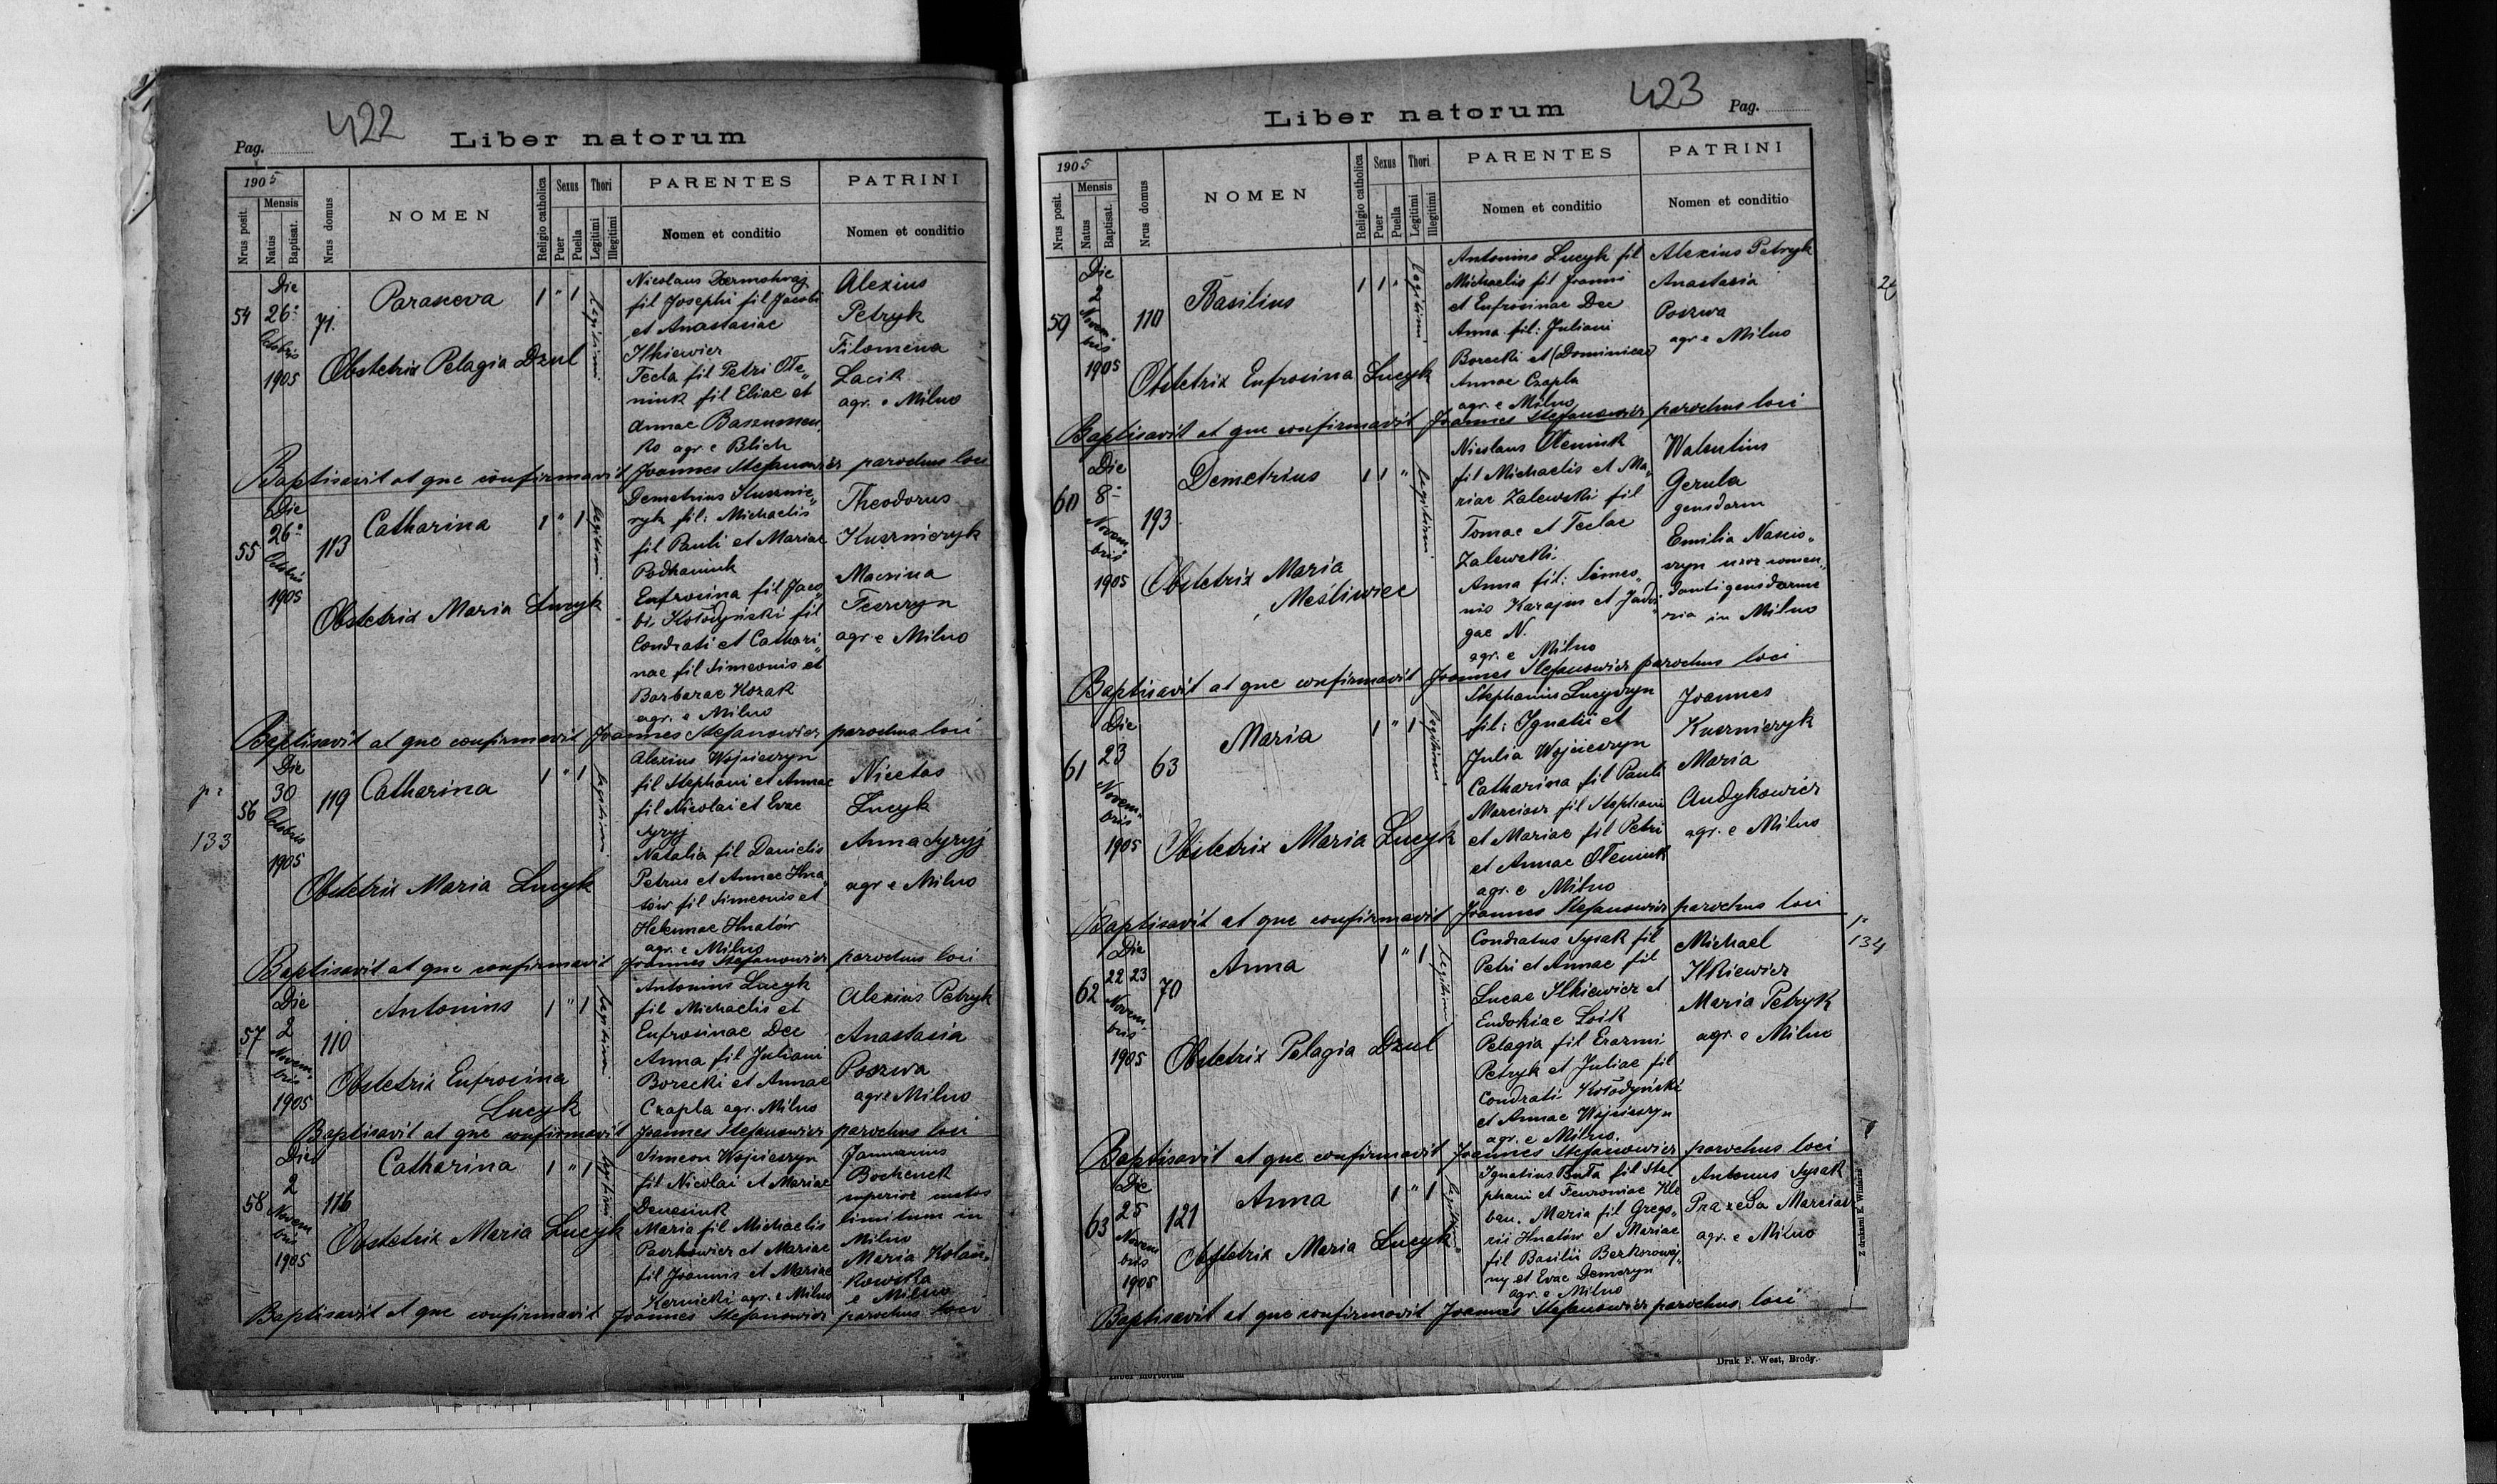 422
Pag.
Liber natorum
1905
Nrus posit.
Mensis
Natus
Baptisat.
Nrus domus
NOMEN
Religio catholica
Sexus
Puer
Puella
Thori
Legitimi
Illegitimi
PARENTES
Nomen et conditio
PATRINI
Nomen et conditio
54
Die
26
Octobris
1905
71.
Parasceva
1 " 1
Legitimi
Obstetrix Pelagia Dzul
Nicolaus
fil Josephi fil Jacobi
et Anastasiae
Ilkiewicz
Tecla fil Petri Ołe„
niuk fil Eliae et
Annae
ko agr e Blich
Alexius
Petryk
Filomena
Lacik
agr. e Milno
Baptisavit at que confirmavit Joannes Stefanowicz parochus loci
55
Die
26
Octobris
1905
113
Catharina
1 " 1
Legitimi
Obstetrix Maria Lucyk
Demetrius Kusznie„
ryk fil: Michaelis
fil Pauli et Mariae
Podhaniuk
Eufrosina fil Jaco„
bi Kołodyński fil
Condrati et Cathari„
nae fil Simeonis et
Barbarae Kozak
agr. e Milno
Theodorus
Kusznieryk
Macrina
agr e Milno
Baptisavit at que confirmavit Joannes Stefanowicz parochus loci
133
56
Die
30
Octobris
1905
119
Catharina
1 " 1
Legitimi
Obstetrix Maria Lucyk
Alexius Wojcieszyn
fil Stephani et Annae
fil Nicolai et Evae
Syryj
Natalia fil Danielis
Petrus et Annae Hna„
tów fil Simeonis et
Helennae Hnatów
agr. e Milno
Nicetas
Lucyk
Anna Syryj
agr e Milno
Baptisavit at que confirmavit Joannes Stefanowicz parochus loci
57
Die
2
Novem„
bris
1905
110
Antonius
1 " 1
Legitimi
Obstetrix Eufrosina
Lucyk
Antonius Lucyk
fil Michaelis et
Eufrosinae Dec
Anna fil Juliani
Borecki et Annae
Czapla agr. Milno
Alexius Petryk
Anastasia
Poszwa
agr e Milno
Baptisavit at que confirmavit Joannes Stefanowicz parochus loci
58
Die
2
Novem
bris
1905
116
Catharina
1 " 1
Legitimi
Obstetrix Maria Lucyk
Simeon Wojcieszyn
fil Nicolai et Mariae
Denesiuk
Maria fil Michaelis
Paszkowicz et Mariae
fil Joannis et Mariae
Kernicki agr. e Milno
Januarius
Bochenek
superior custos
limitum in
Milno
Maria Kolan„
kowska
e Milno
Baptisavit at que confirmavit Joannes Stefanowicz parochus loci
423
Pag.
Liber natorum
1905
Nrus posit.
Mensis
Natus
Baptisat.
Nrus domus
NOMEN
Religio catholica
Sexus
Puer
Puella
Thori
Legitimi
Illegitimi
PARENTES
Nomen et conditio
PATRINI
Nomen et conditio
59
Die
2
Novem„
bris
1905
110
Basilius
1 1 "
Legitimi
Obstetrix Eufrosina Lucyk
Antonius Lucyk fil
Michaelis fil Joanni
et Eufrosinae Dec
Anna fil: Juliani
Borecki et (Dominicae)
Annae Czapla
agr. e Milno
Alexius Petryk
Anastasia
Poszwa
agr e Milno
Baptisavit at que confirmavit Joannes Stefanowicz parochus loci
60
Die
8
Novem„
bris
1905
193
Demetrius
1 1 "
Legitimi
Obstetrix Maria
Meśliwiec
Nicolaus Ołeniuk
fil Michaelis et Ma„
riae Zalewski fil
Tomae et Teclae
Zalewski.
Anna fil: Simeo„
nis Karajus et Jadvi„
gae N.
agr. e Milno
Walentius
Gerula
gensdarm
Emilia
uxor
in Milno
Baptisavit at que confirmavit Joannes Stefanowicz parochus loci
61
Die
23
Novem„
bris
1905
63
Maria
1 " 1
Legitimi
Obstetrix Maria Lucyk
Stephanus Lucyszyn
fil: Ignatii et
Julia Wojcieszyn
Catharina fil Pauli
Marciasz fil Stephani
et Mariae fil Petri
et Annae Ołeniuk
agr. e Milno
Joannes
Kusznieryk
Maria
Andykowicz
agr. e Milno
Baptisavit at que confirmavit Joannes Stefanowicz parochus loci
134
62
Die
22 23
Novem„
bris
1905
70
Anna
1 " 1
Legitimi
Obstetrix Pelagia Dzul
Condratus Sysak fil
Petri et Annae fil
Lucae Ilkiewicz et
Eudokiae Loik
Pelagia fil Erazmi
Petryk et Juliae fil
Condrati Kołodyński
et Annae Wojcieszyn
agr. e Milno.
Michael
Ilkiewicz
Maria Petryk
agr. e Milno
Baptisavit at que confirmavit Joannes Stefanowicz parochus loci
63
Die
25
Novem
bris
1905
121
Anna
1 " 1
Legitimi
Obstetrix Maria Lucyk
Ignatius Buła fil Ste
phani et Fevroniae Kle
ban. Maria fil Grego„
rii Hnatów et Mariae
fil Basilii
ny et Evae Demczyn
agr. e Milno
Antonius Sysak
Prazeda Marciasz
agr. e Milno
Baptisavit at que confirmavit Joannes Stefanowicz parochus loci
Z drukarni E. Winiarza
Druk F. West, Brody.
Liber mortuorum